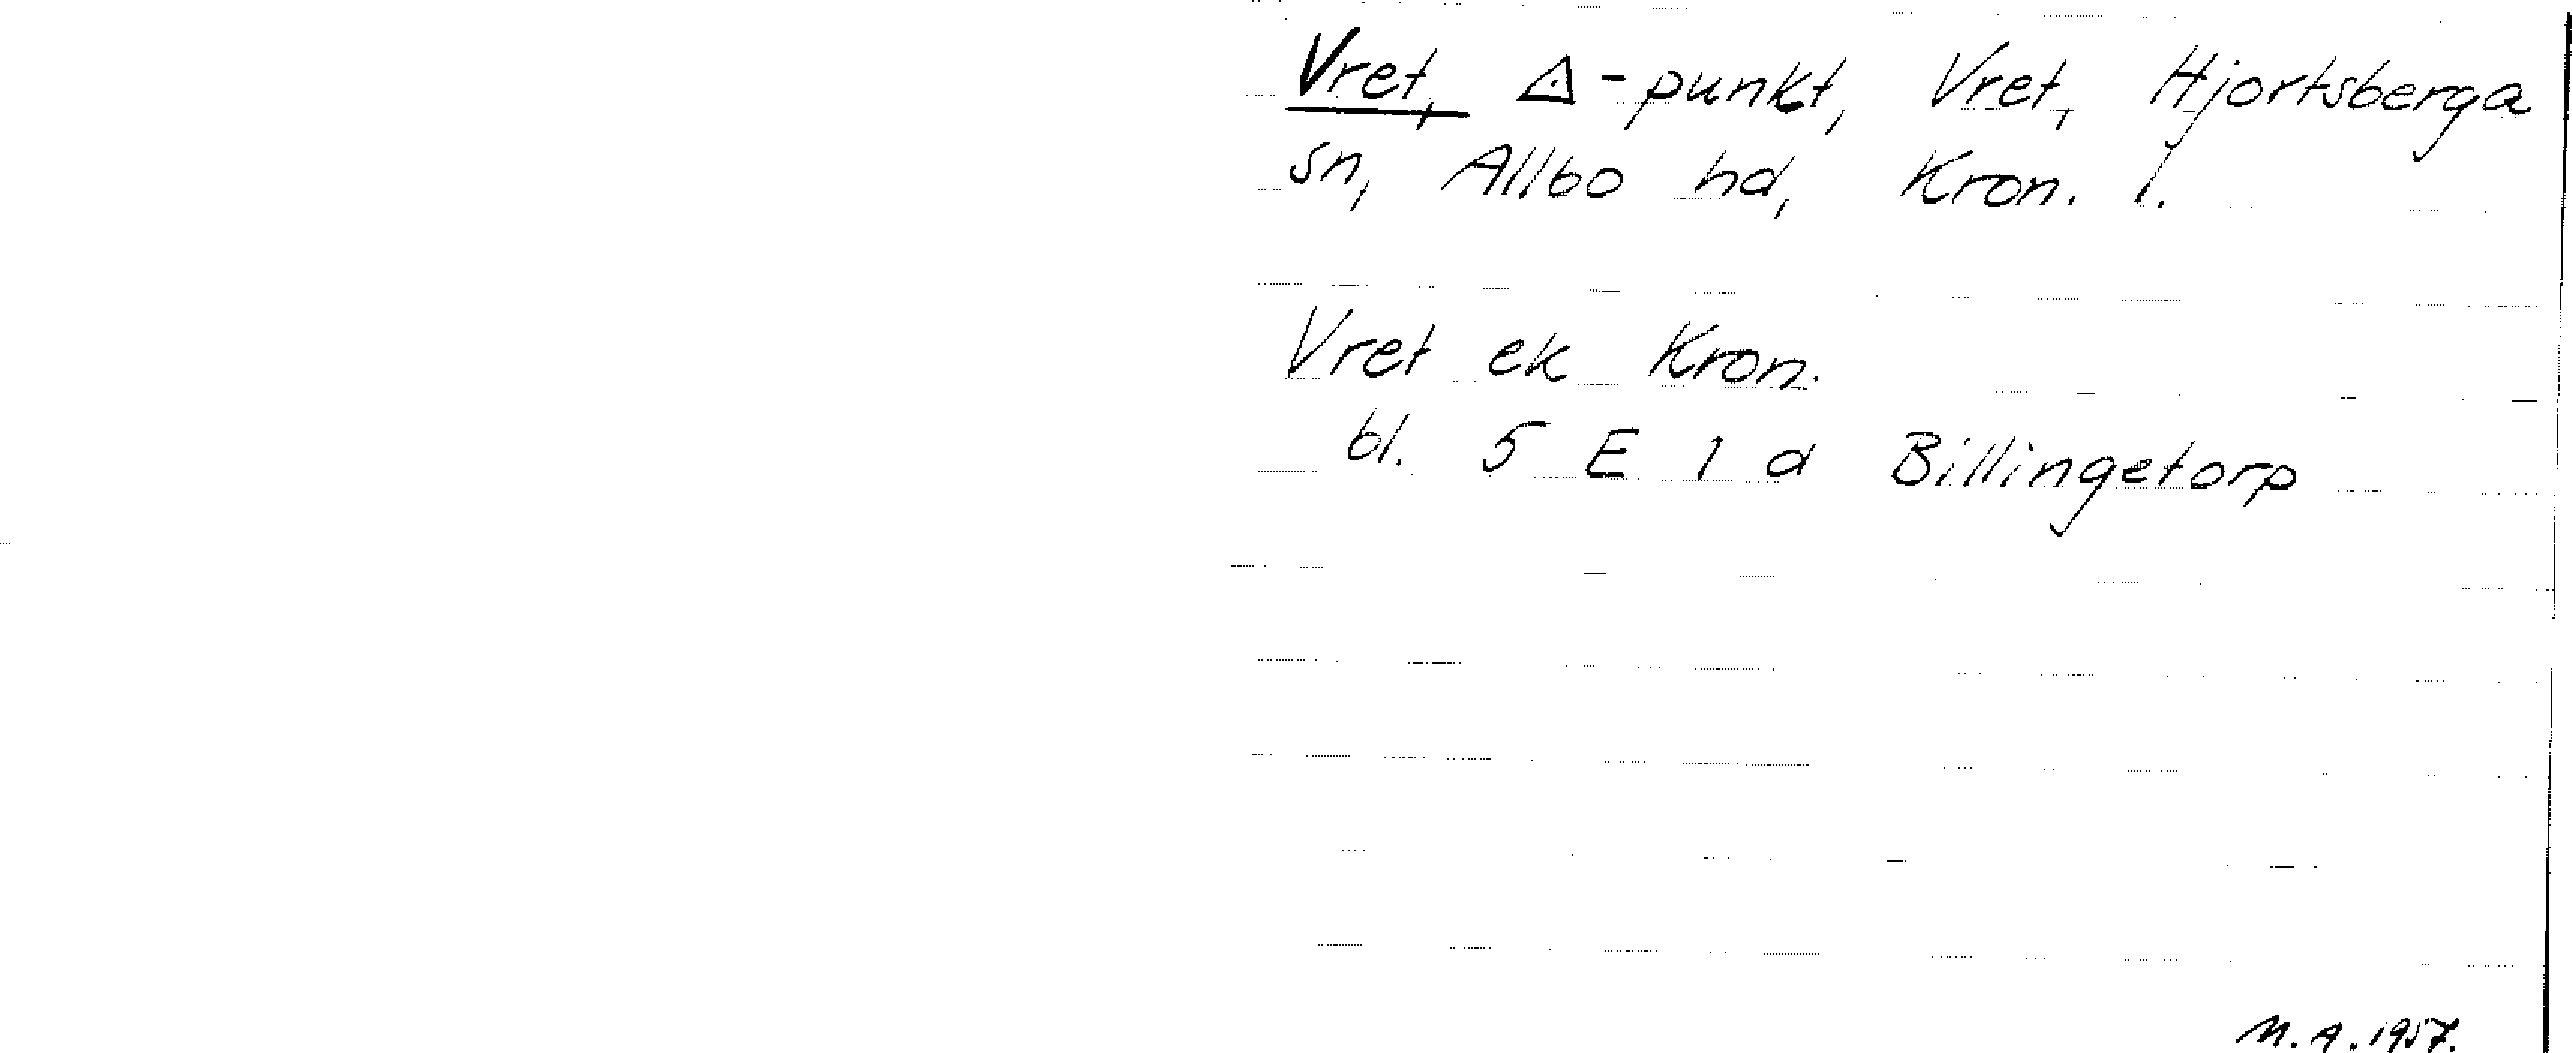 Vret, ◬-punkt, Vret, Hjortsberga
sn, Allbo hd, Kron. l.
Vret ek Kron.
bl. 5 E 1 d Billingetorp
M.A. 1957.